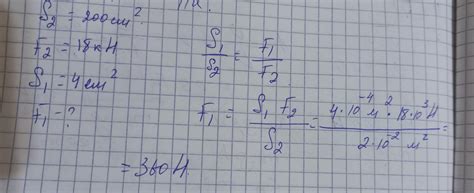 S₂ = 200 см²
F₂ = 18 кН
S₁ = 4 см²
F₁ = ?
S₁/S₂ = F₁/F₂
F₁ = S₁ F₂ / S₂ = 4·10⁻⁴ м² · 18·10³ Н / 2·10⁻² м² =
= 360 Н.